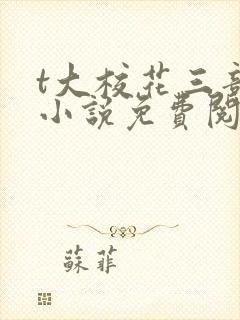 t大校花三部
小說免費閱
蘇菲